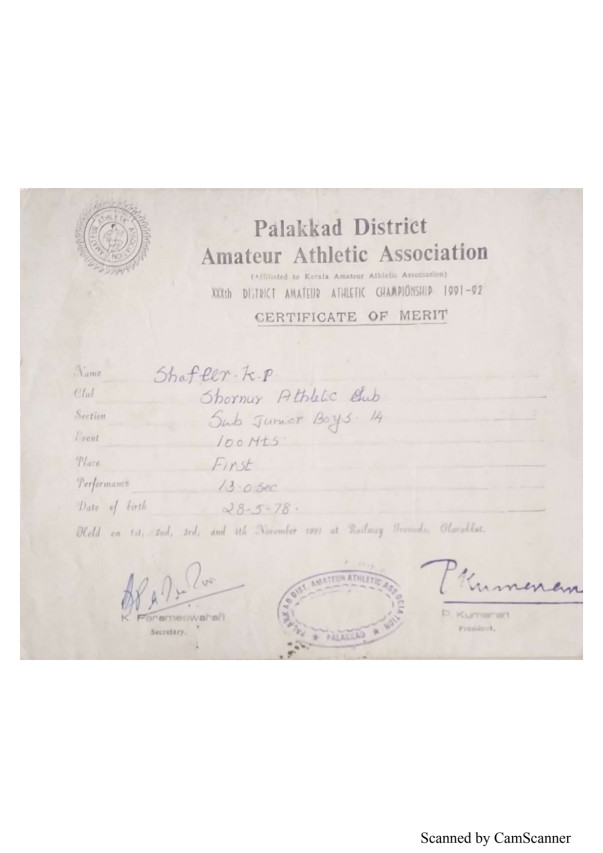 Palakkad District
Amateur Athletic Association
(Affiliated to Kerala Amateur Athletic Association)
XXXth DISTRICT AMATEUR ATHLETIC CHAMPIONSHIP 1991-92
CERTIFICATE OF MERIT
AMATEUR ATHLETIC ASSOCIATION
Name Shafeer. K. P
Club Shornur Athletic Club
Section Sub Junior Boys 14
Event 100 Mts
Place First
Performance 13.0 sec
Date of birth 28-5-78.
Held on 1st, 2nd, 3rd, and 4th November 1991 at Railway Grounds, Olavakkot.
P Kumaran
K. Parameswaran
Secretary.
PALAKKAD DIST. AMATEUR ATHLETIC ASSOCIATION
PALAKKAD
P. Kumaran
President.
Scanned by CamScanner